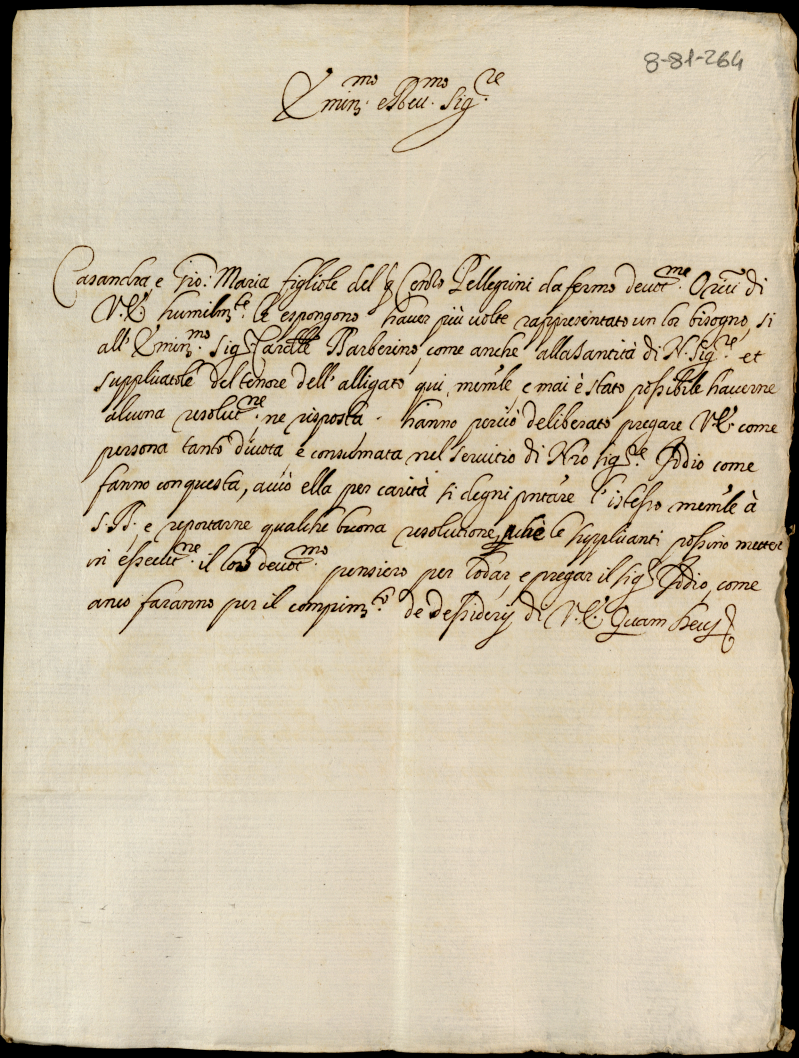 8-81-264
Emin.mo e Reu.mo Sig.re
Casandra e Gio: Maria figliole del q Pellegrini da fermo deuot.me Orīci di
V.E. humilm.te le espongono hauer più uolte rappresentato un lor bisogno, si
all' Emin.mo Sig.r Cardle Barberino, come anche alla Santità di N. Sig.re et
supplicatole del tenore dell' alligato qui mem'le, e mai è stato possibile hauerne
alcuna resolut.ne ne risposta. hanno perciò deliberato pregare V.E. come
persona tanto diuota e consumata nel seruitio di Nro Sig.re Iddio come
fanno con questa, acciò ella per carità si degni pntare l'istesso mem'le à
S. B. e reportarne qualche buona resolutione, le supplicanti possino metter
in essecut.ne il loro deuot.mo pensiero per lodar, e pregar il Sig.r Iddio, come
anco faranno per il compim.to de dessiderij di V.E. Quam Deus